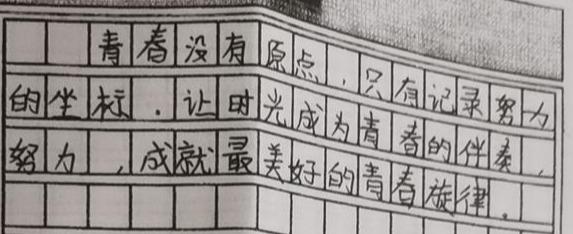 青春没有原点，只有记录努力
的坐标。让时光成为青春的伴奏，
努力，成就最美好的青春旋律。